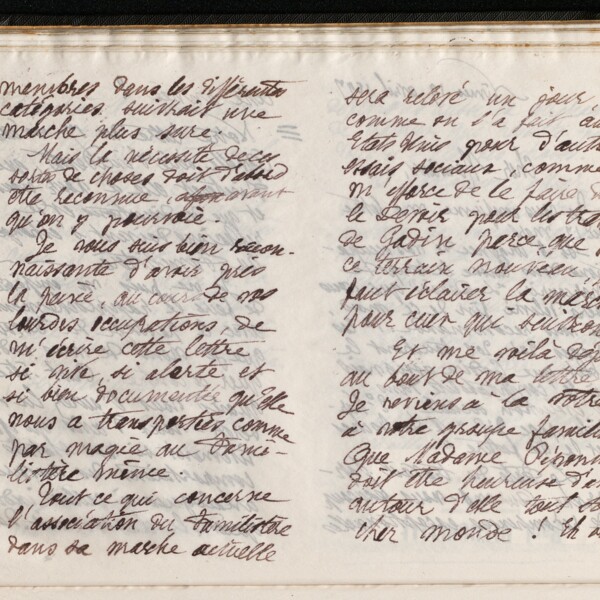 membres dans les différentes
catégories suivrait une
marche plus sure.
Mais la nécessité de ces
sorte de choses doit d'abord
être reconnue, avant
qu'on y pourvoie.
Je vous suis bien recon-
naissante d'avoir pris
la peine, au cours de vos
lourdes occupations, de
m'écrire cette lettre
si vite si alerte et
si bien documentée qu'elle
nous a transportés comme
par magie au Fami-
listère même.
Tout ce qui concerne
l'association du Familistère
dans sa marche actuelle
sera relevé un jour,
comme on l'a fait au
Etats Unis pour d'autr
essais sociaux, comme
m'efforce de le faire d
le Devoir pour les tra
de Godin parce que
ce terrain nouveau
faut éclairer la marc
pour ceux qui suivron
Et me voilà
au bout de ma lettre
Je reviens à la vôtre
à votre groupe famili
Que Madame
doit être heureuse d'a
autour d'elle tout so
cher monde ! Et